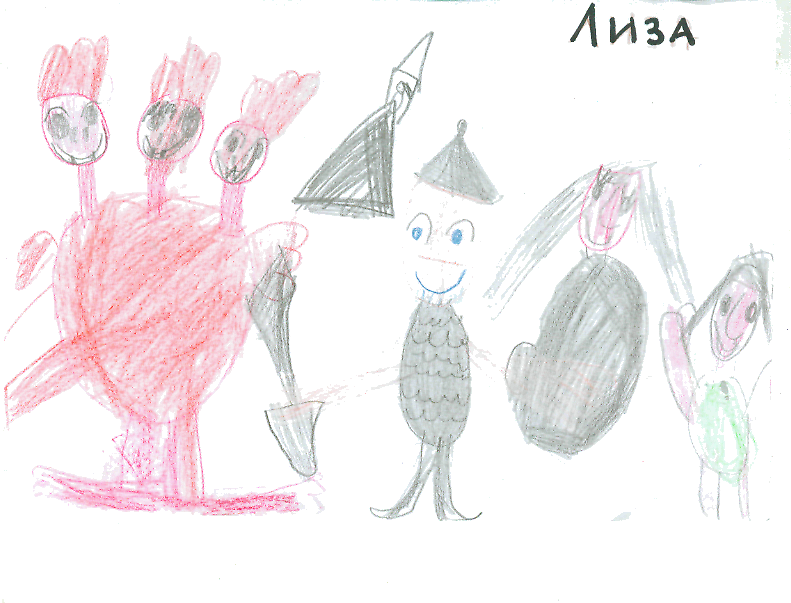 Лиза